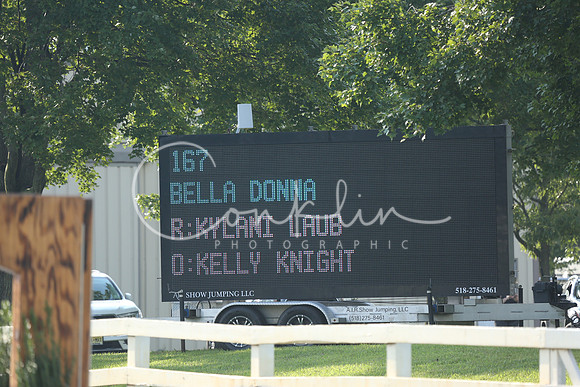 167
BELLA DONNA
R:KYLANI LAUB
O:KELLY KNIGHT
Conklin
PHOTOGRAPHIC
SHOW JUMPING LLC
518-275-8461
A.I.R. Show Jumping, LLC
(518)275-8461